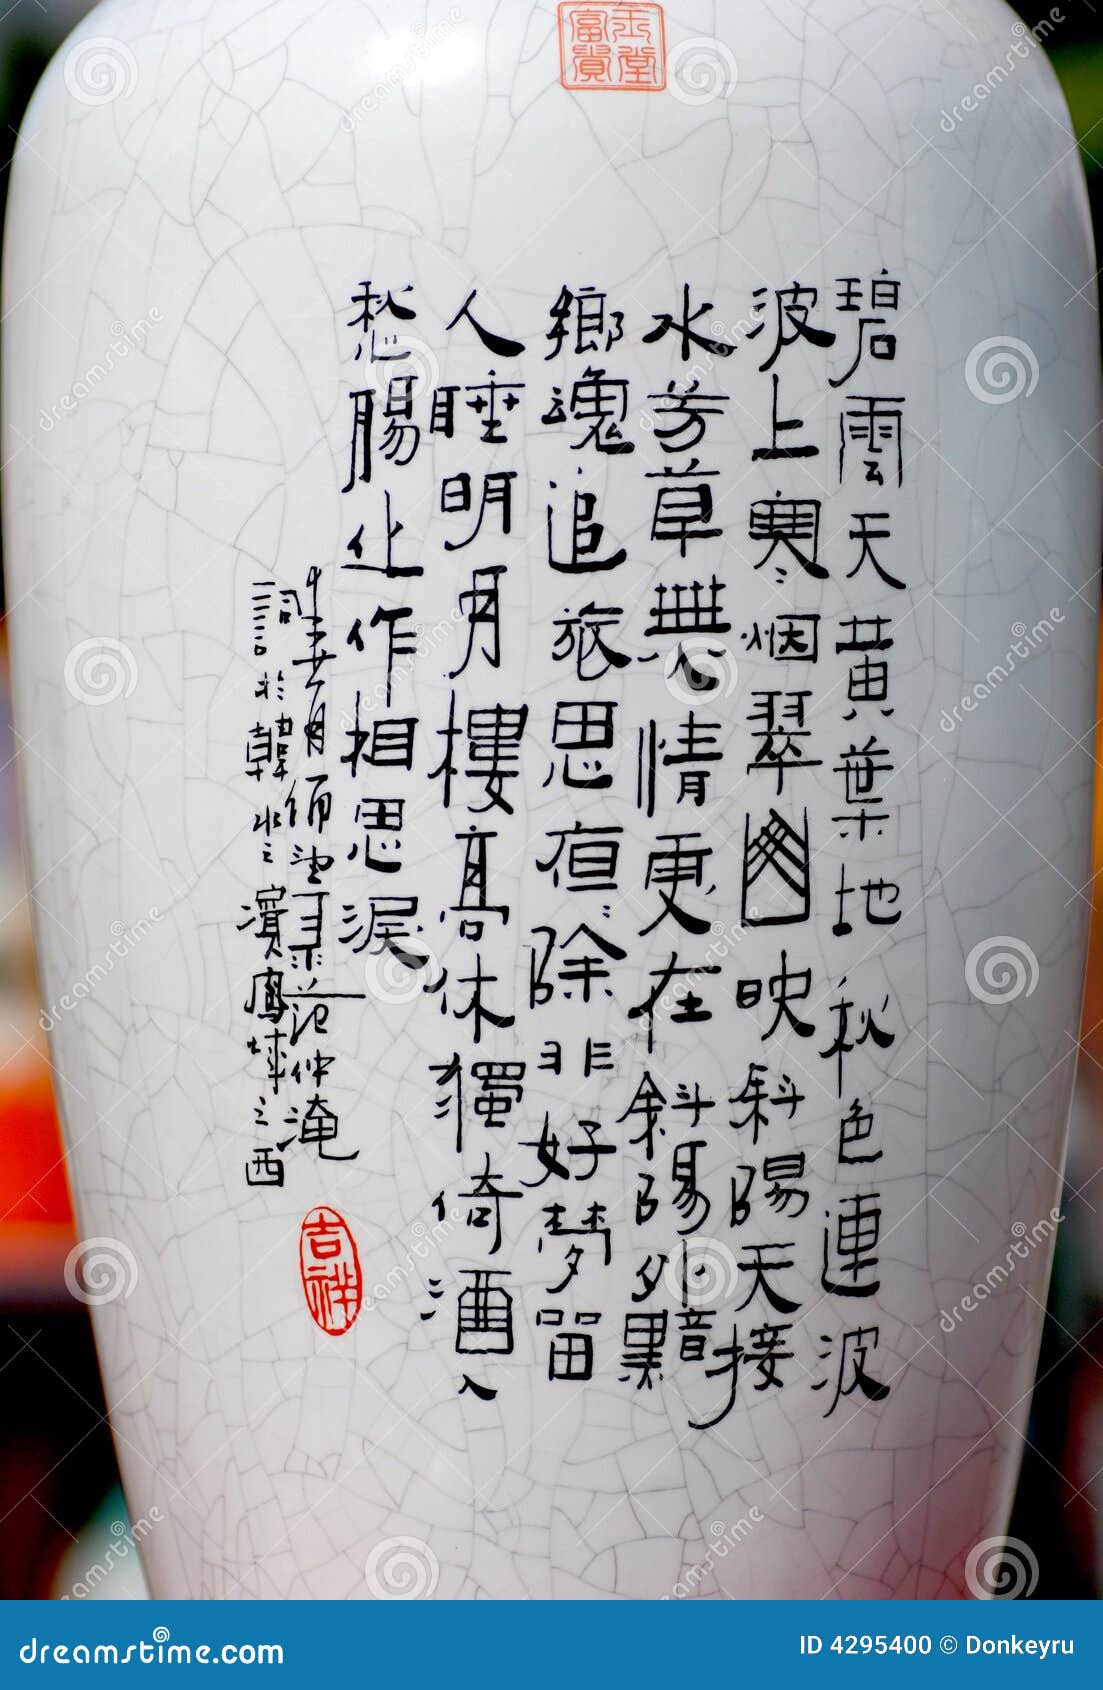 玉堂
富貴
碧雲天黃葉地秋色連波
波上寒烟翠山映斜陽天接
水芳草無情更在斜陽外黯
鄉魂追旅思夜〻除非好夢留
人睡明月樓高休獨倚酒入
愁腸化作相思淚
范仲淹
詞於韓水之濱鳳之西
吉祥
dreamstime.com
ID 4295400 © Donkeyru